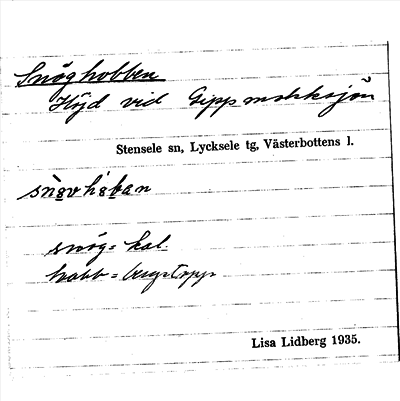 Snöghobben
Höjd vid Gippmokksjön
Stensele sn, Lycksele tg, Västerbottens l.
snög = kal.
hobb = bergstopp
Lisa Lidberg 1935.